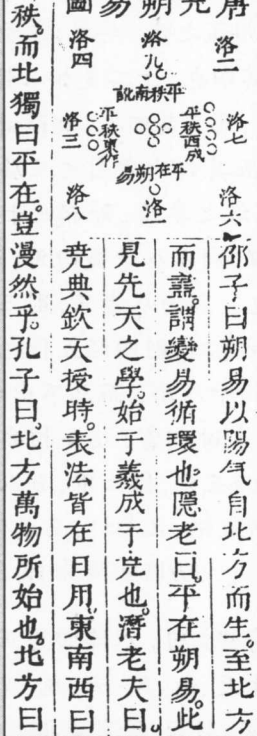 唐堯朔易圖
洛二
洛七
洛六
洛九
洛一
洛四
洛三
洛八
平秩南訛
平秩西成
平秩東作
平在朔易
邵子曰朔易以陽气自北方而生。至北方
而齍。謂變易循環也。隱老曰。平在朔易。此
見先天之學。始于羲成于堯也。潛老夫曰。
堯典欽天授時。表法皆在日用。東南西曰
秩。而北獨曰平在。豈漫然乎。孔子曰。北方萬物所始也。北方曰